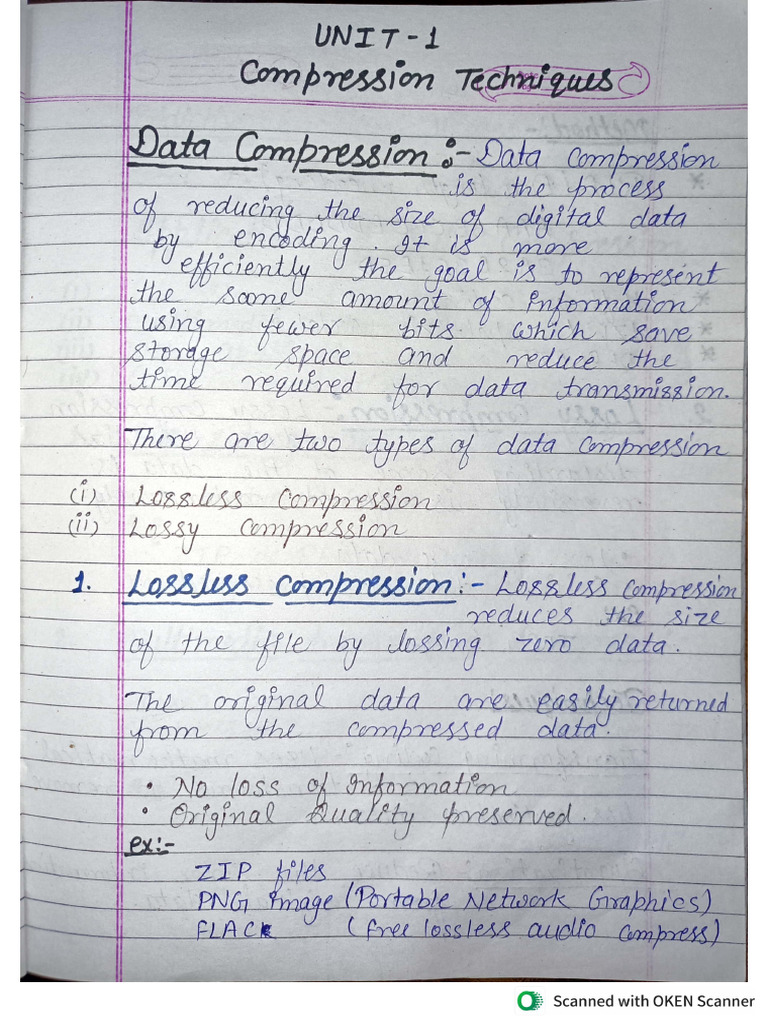 UNIT-1
Compression Techniques
Data Compression :- Data compression
is the process
of reducing the size of digital data
by encoding. It is more
efficiently the goal is to represent
the some amount of information
using fewer bits which save
storage space and reduce the
time required for data transmission.
There are two types of data compression
(i) Lossless compression
(ii) Lossy compression
1. Lossless compression :- Lossless compression
reduces the size
of the file by lossing zero data.
The original data are easily returned
from the compressed data.
• No loss of Information
• Original Quality preserved.
ex:-
ZIP files
PNG Image (Portable Network Graphics)
FLAC (free lossless audio compress)
Scanned with OKEN Scanner